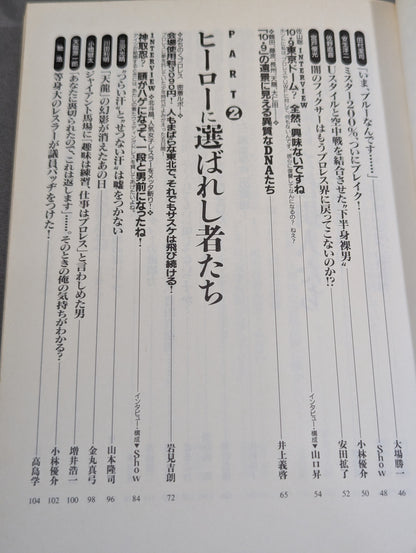 田村潔司
「いま、ブルーなんです……」
大場勝一
46
安生洋二
ミスター200％、ついにブレイク！
Show
48
佐野直喜
Uスタイルと空中戦を結合させた“下半身裸男”
小林優介
50
闇のフィクサーはもうプロレス界に戻ってこないのか!?
安田拡了
52
INTERVIEW
10・9東京ドーム？ 全然、興味ないですね
インタビュー・構成▼山口昇
54
「10・9」の遠景に見える異質なDNAたち
井上義啓
65
PART❷
ヒーローに選ばれし者たち
会場使用料3090円！ 人もまばらな東北で、それでもサスケは飛び続ける！
岩見吉朗
72
INTERVIEW
神取忍？ 顔がハゲになって、一段と男前になったね！
インタビュー・構成▼Show
84
“つらい汗”と“せつない汗”は嘘をつかない
山本隆司
96
「天龍」の幻影が消えたあの日
金丸真弓
98
小橋健太
ジャイアント馬場に「趣味は練習、仕事はプロレス」と言わしめた男
増井浩一
100
「あなたに裏切られたので、これは返します」……。そのときの俺の気持ちがわかる？
小林優介
102
馳浩
等身大のレスラーが議員バッヂをつけた！
高島学
104